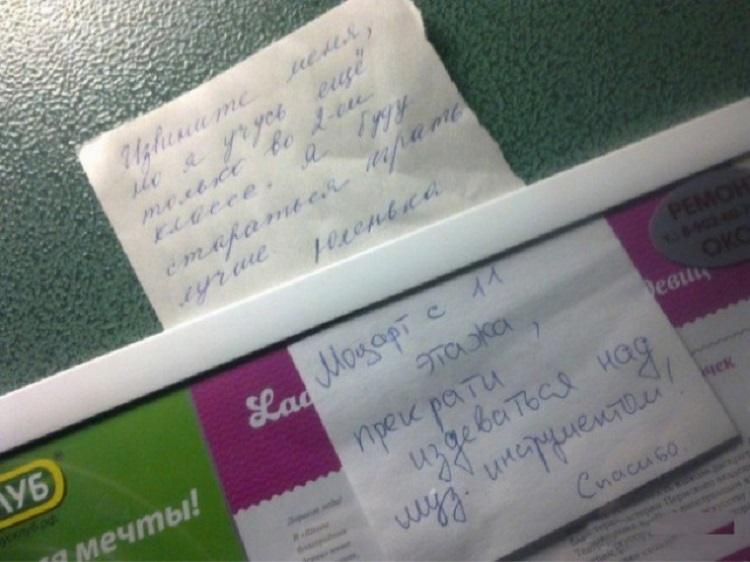 Извините меня,
но я учусь ещё
только во 2-ом
классе. Я буду
стараться играть
лучше Юленька
Моцарт с 11
этажа,
прекрати
издеваться над
муз. инструментом!
Спасибо.
РЕМОН
ОКО
девиц
Lad
ЛУБ
мечты!
Дорогие леди!
В «Школе